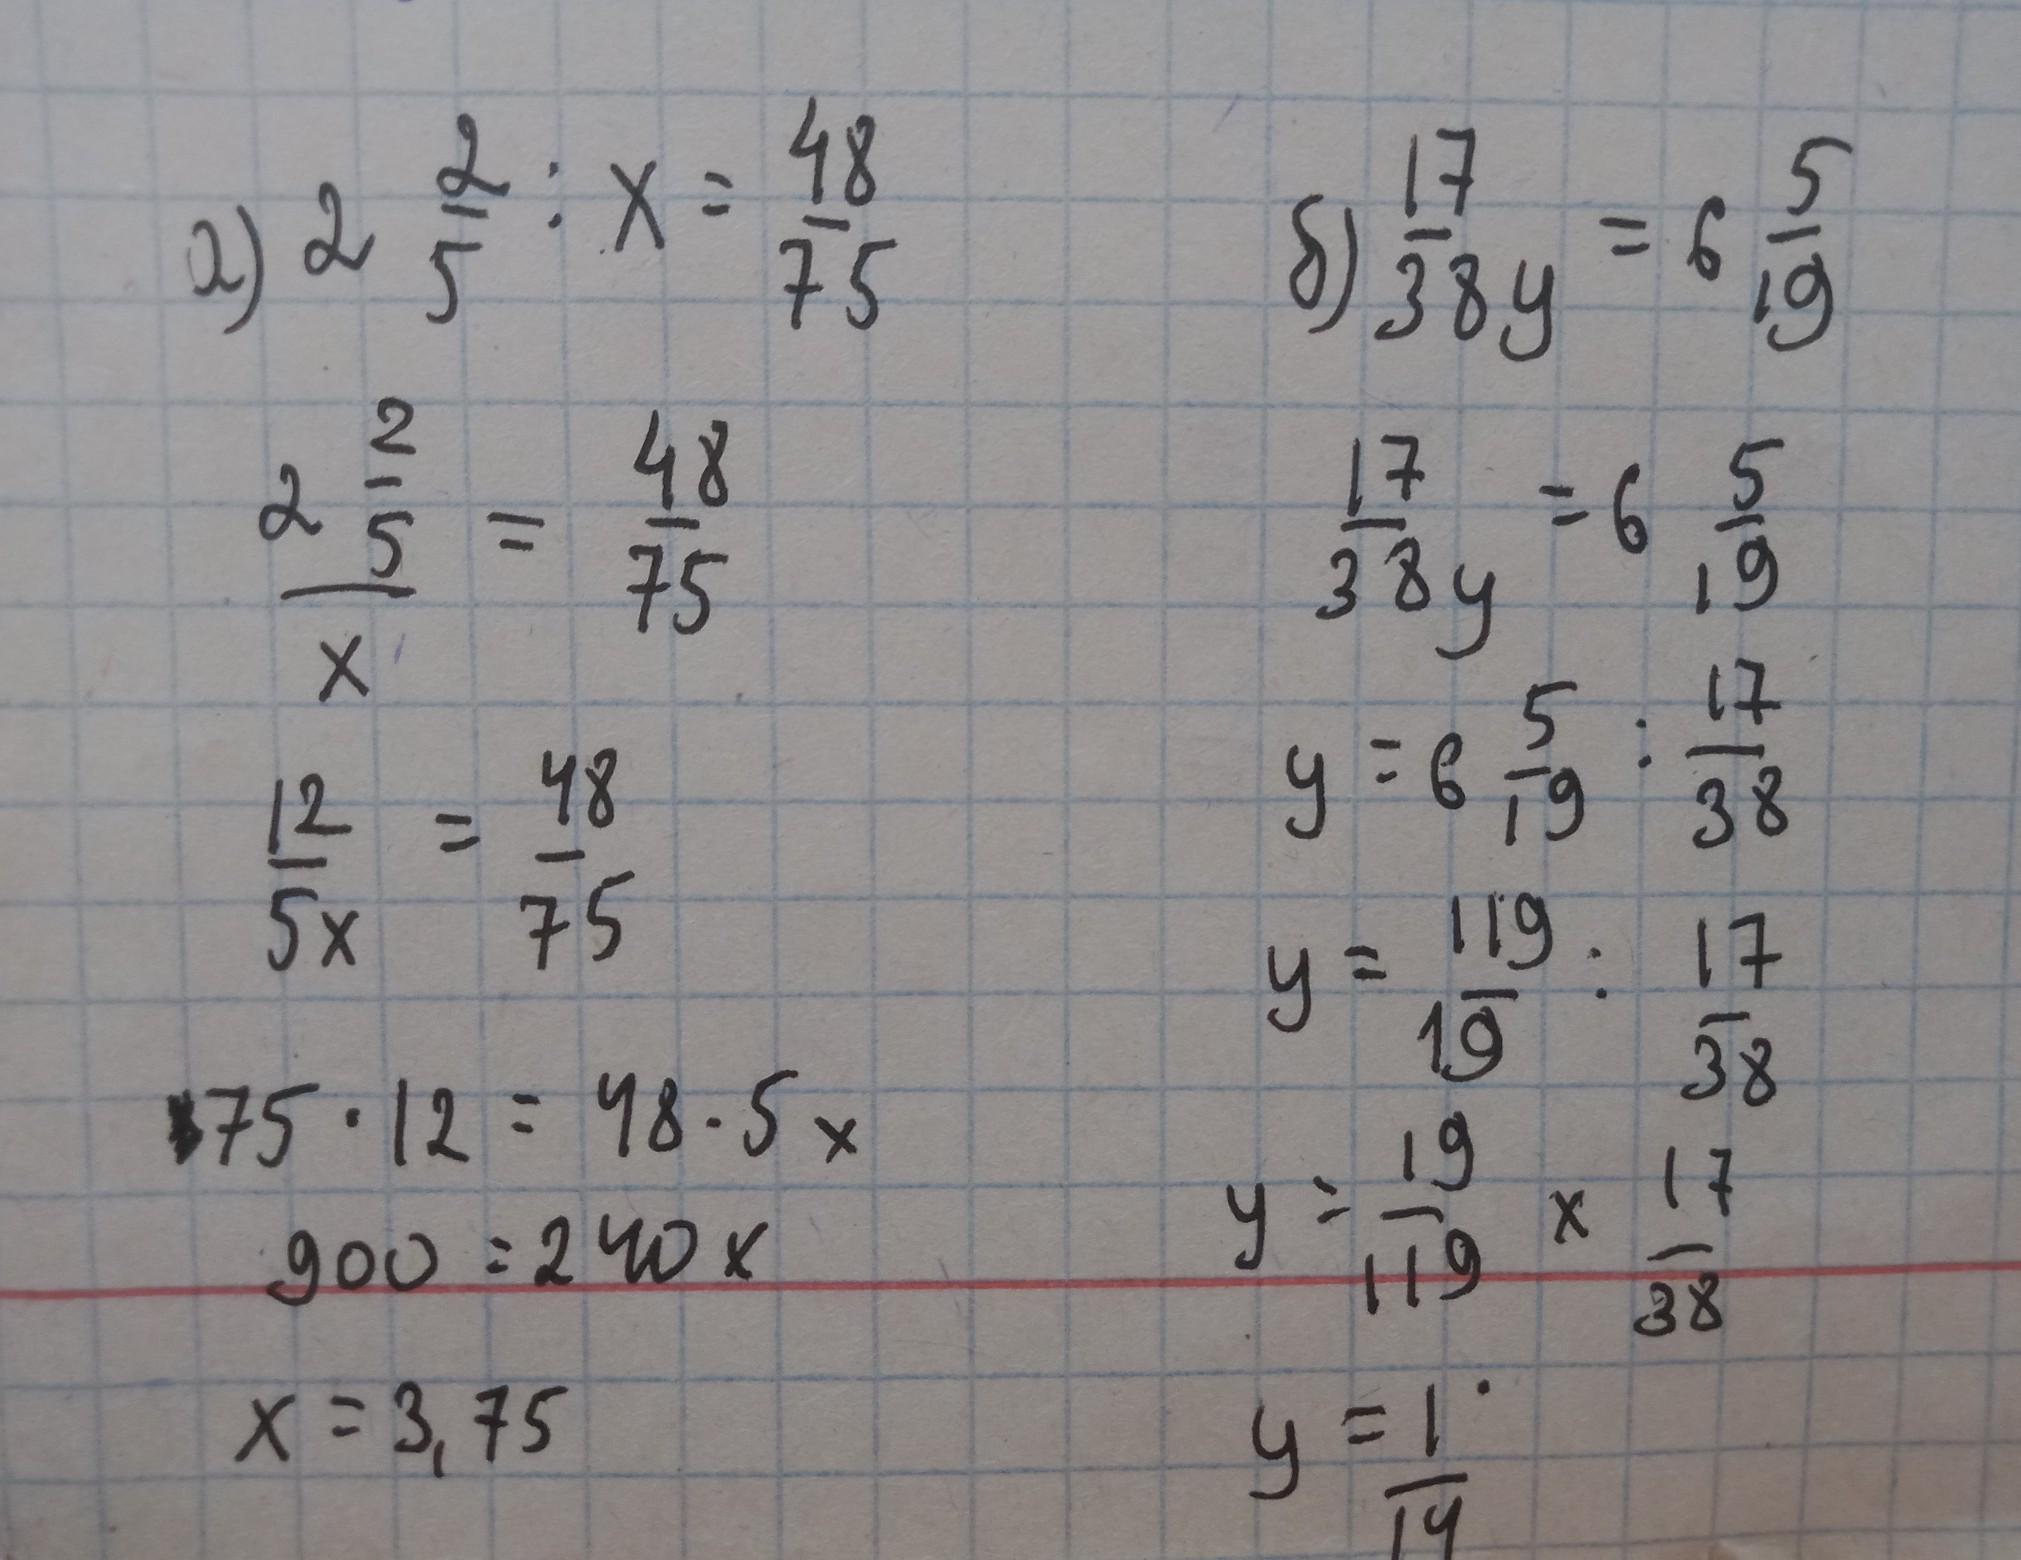 а) 2 2/5 : x = 48/75
2 2/5 / x = 48/75
12/5x = 48/75
75 · 12 = 48 · 5x
900 = 240x
x = 3,75
б) 17/38 y = 6 5/19
17/38 y = 6 5/19
y = 6 5/19 : 17/38
y = 119/19 : 17/38
y = 19/119 x 17/38
y = 1/14